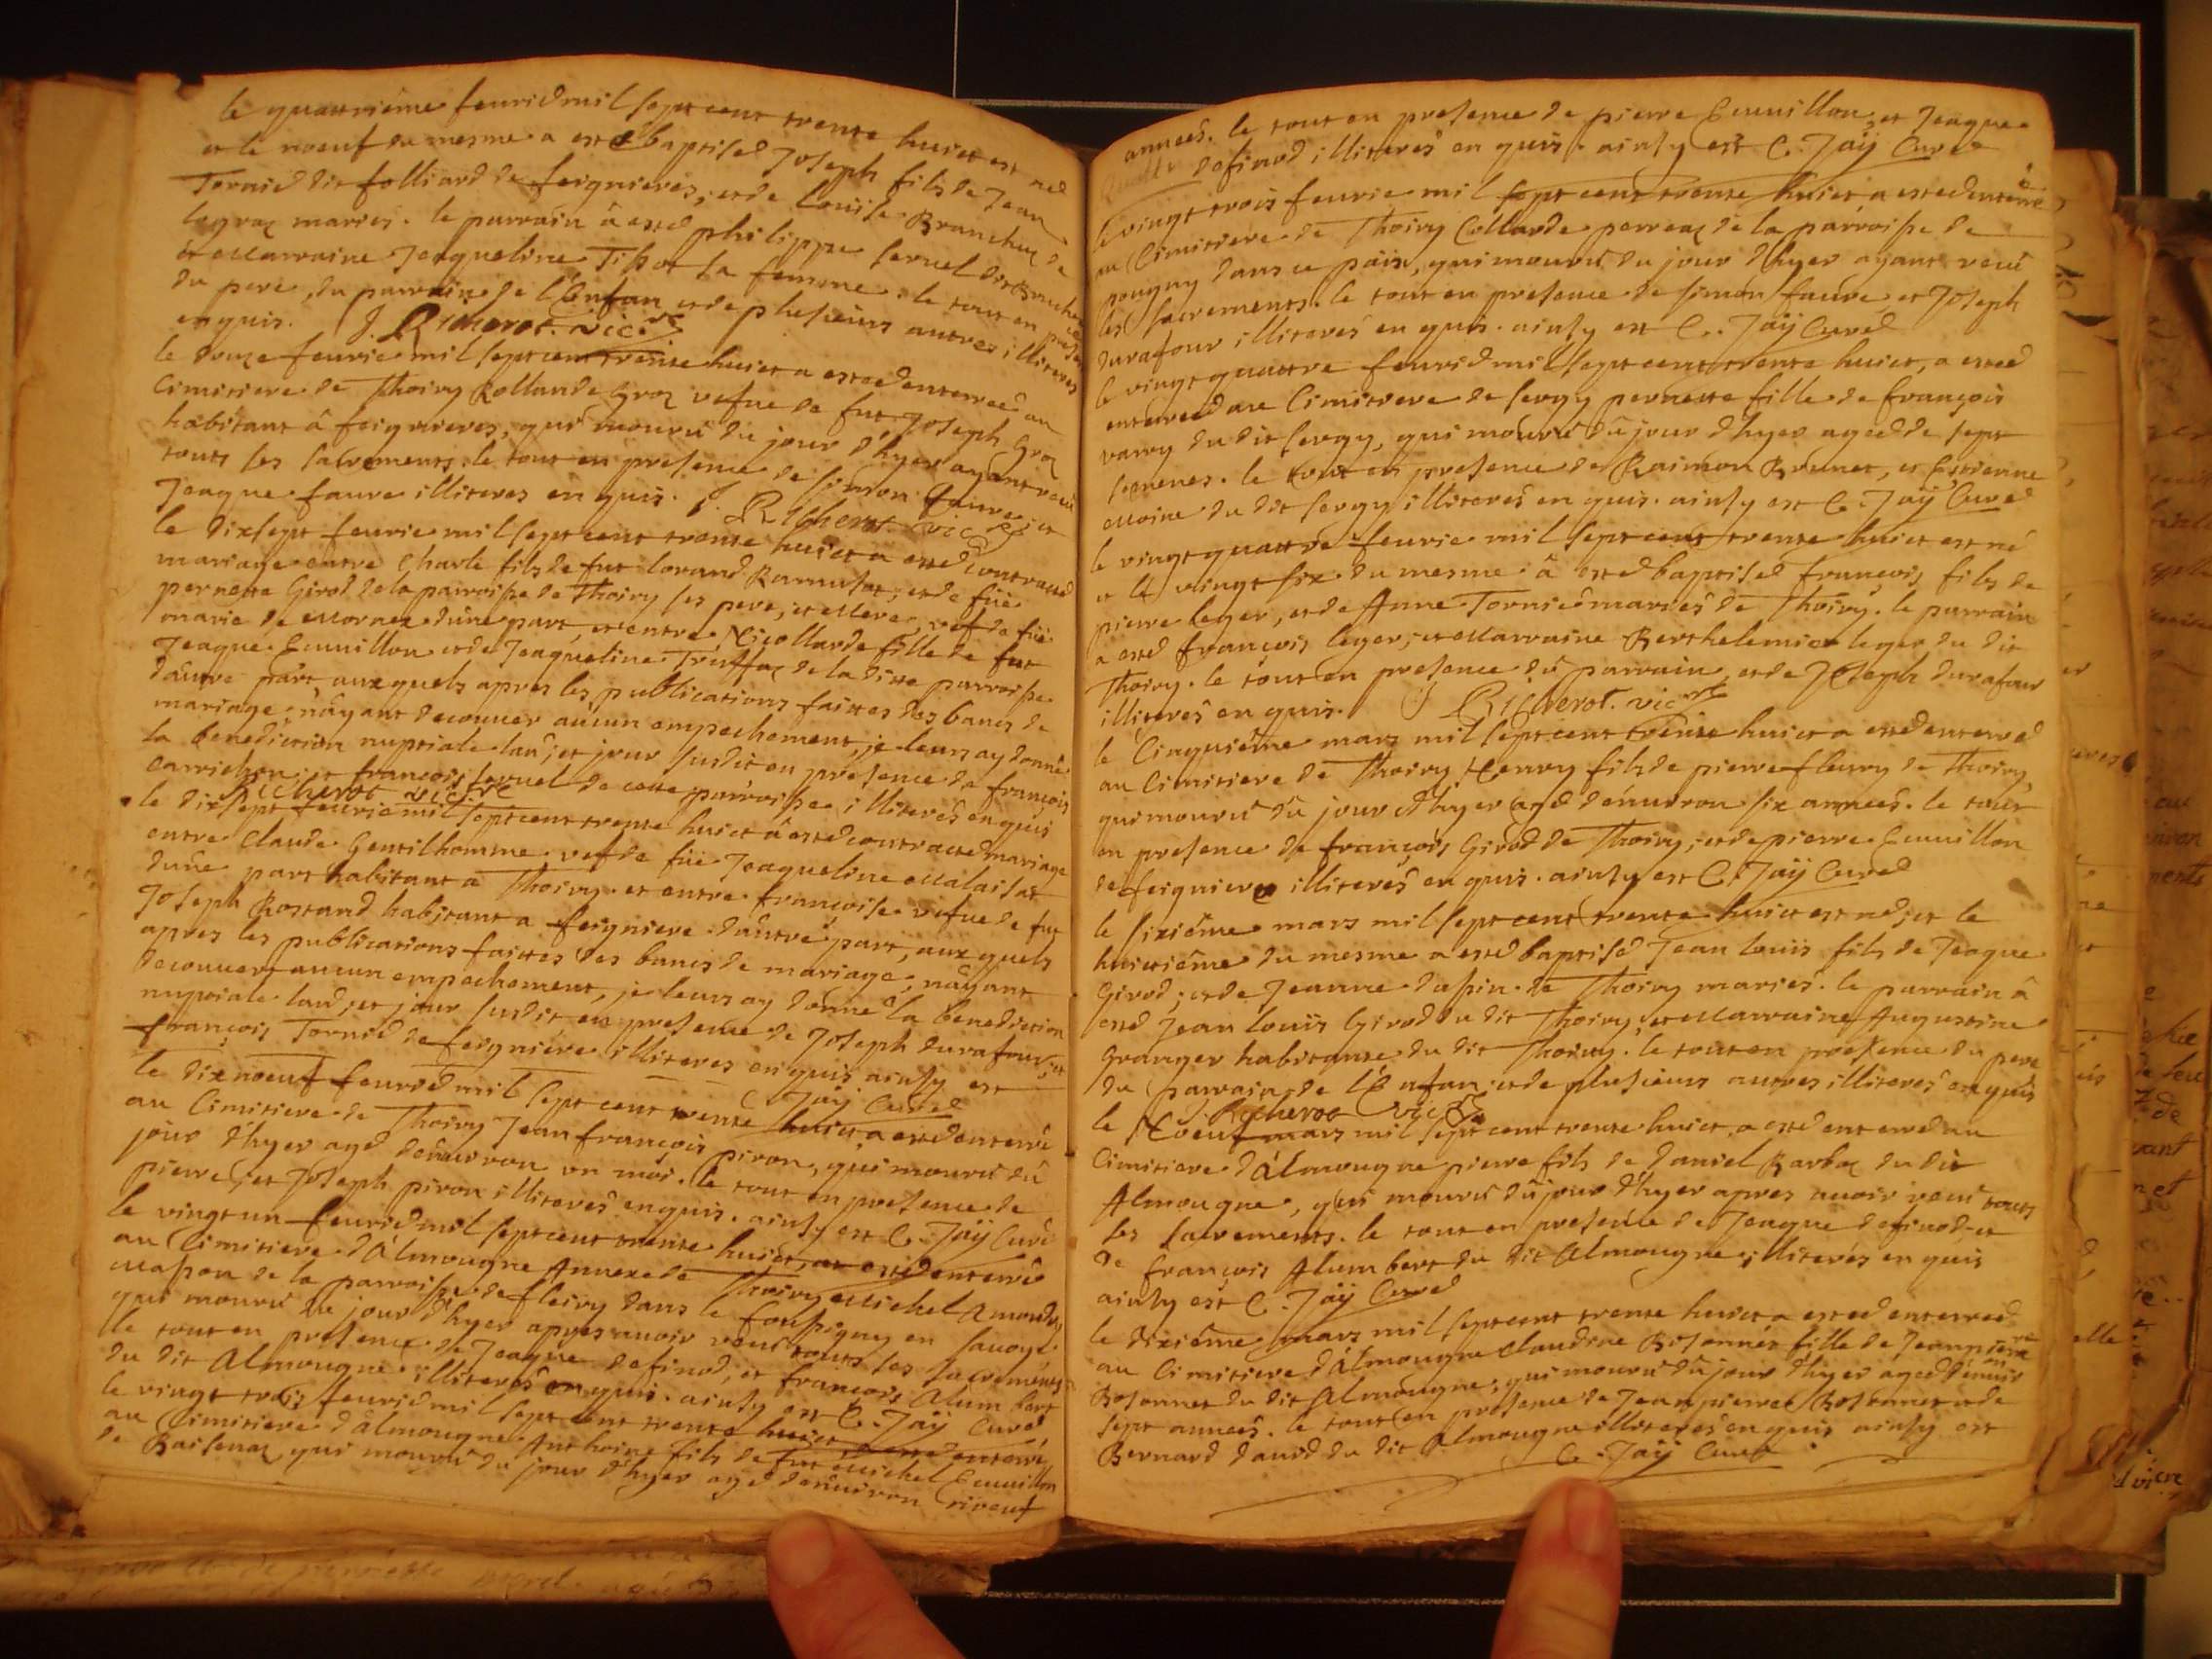 le quattriéme feurié mil sept cent trente huict est né
et le noeuf du mesme a esté baptisé Joseph fils de Jean
Tornié dit folliard de feignieres, et de Louise Branchu de
legraz mariés. le parrain â esté philippe seruel dit
et Marraine Jeaqueline Tissot sa femme. le tout en
du pere, du parrain de l'Enfan et de plusieurs autres illiteres
enquis. J. Richerot. vic.re
le douze feurie mil sept cent trente huict a esté enterreé au
Cimitiere de Thoiry Rollande Groz vefue de fut Joseph Groz
habitant â feignieres, qui mouru du jour d'hyer ayant receu
touts les sacrements. le tout en presence de simon faure et
Jeaque faure illiteres en quis. J. Richerot vic.re
le dixsept feurie mil sept cent trente huict a esté contracté
mariage entre Charle fils de fut Lorand Ramusat, et de füe
pernette Girod de la parroisse de Thoiry ses pere, et Mere, vef de füe
marie de Moraz d'une part, et entre Nicollarde fille de fut
Jeaque Emuillon et de Jeaqueline Truffaz de la ditte parroisse
d'autre part, auxquels apres les publications faittes des bancs de
mariage, n'ayant decouuer aucun empechement, je leurs ay donné
la benediction nuptiale lan, et jour susdit en presence de françois
et françois seruel de cette parroisse illiterés enquis
Richerot vic.re
le dixsept feurie mil sept cent trente huict â esté contracté mariage
entre Claude Gentilhomme vef de füe Jeaqueline Malaisat
dune part habitant a Thoiry. et entre françoise vefue de fut
Joseph Rostand habitant a feigniere d'autre part, aux quels
apres les publications faittes des bancs de mariage, n'ayant
decouuert aucun empechement, je leurs ay donné la benediction
nuptiale land, et jour susdit, en presence de Joseph durafour, et
françois Tornié de feigniere illiteres enquis ainsy est
C. Jaÿ Curé
le dixnoeuf feurié mil sept cent trente huict a esté enterré
au Cimitiere de Thoiry Jean françois piron, qui mouru dû
jour d'hyer agé d'enuiron un moi. le tout en presence de
pierre, et Joseph piron illiterés enquis. ainsy est C. Jaÿ Curé
le vingt un feurié mil sept cent trente huict, a esté enterré
au Cimitiere d'Almougne Annexe de Thoiry Michel Amoudry
Masson de la parroisse de fleiry dans le fossigny en sauoye
qui mouru du jour d'hyer apres auoir receu touts les sacrements
le tout en presence de Jeaque definod, et françois Alumbert
du dit Almougne illiterés en quis. ainsy est C. Jaÿ Curé
le vingt trois feurié mil sept cent trente huict a esté enterré
au Cimitiere d'almougne Anthoine fils de fut Michel Emuillon
de Baisenaz qui mouru du jour d'hyer agé d'enuiron noeuf
anneés. le tout en presence de pierre Emuillon, et Jeaque
definod illiterés en quis. ainsy est C. Jaÿ Curé
le vingt trois feurie mil sept cent trente huict a esté enterreé
au Cimitiere de Thoiry Collarde perreaz de la parroisse de
pougny dans ce païs, qui mouru du jour d'hyer ayant receu
les sacrements. le tout en presence de simon faure et Joseph
durafour illiterés en quis. ainsy est C. Jaÿ Curé
le vingt quattre feurié mil sept cent trente huict, a esté
enterreé au Cimitiere de sergy pernette fille de françois
varry du dit sergy, qui mouru dû jour d'hyer ageé de sept
semenes. le tout en presence de Raimon Brunet, et Estienne
Moine du dit sergy illiterés en quis. ainsy est C. Jaÿ Curé
le vingt quattre feurie mil sept cent trente huict est né
et le vingt six du mesme â esté baptisé françois fils de
pierre leger, et de Anne Tornié mariés de Thoiry. le parrain
a esté françois leger, et Marraine Berthelemie leger du dit
Thoiry. le tout en presence dû parrain, et de Joseph durafour
illiterés en quis. J Richerot. vic.re
le Cinquiéme mars mil sept cent trente huict a esté enterré
au Cimitiere de Thoiry Henry fils de pierre fleury de Thoiry,
qui mouru dû jour d'hyer agé d'enuiron six anneés. le tout
en presence de françois Girod de Thoiry, et de pierre Emuillon
de feigniere illiterés en quis. ainsy est C. Jaÿ Curé
le sixiéme mars mil sept cent trente huict est né, et le
huictiéme du mesme a esté baptisé Jean louis fils de Jeaque
Girod, et de Jeanne dupin de Thoiry mariés. le parrain â
esté Jean louis Girod du dit Thoiry, et Marraine Augustine
Granger habitante du dit Thoiry. le tout en presence du pere
du parrain, de l'Enfan, et de plusieurs autres illiterés enquis
J. Richerot vic.re
le Noeuf mars mil sept cent trente huict a esté enterré au
Cimitiere d'Almougne pierre fils de Daniel Barbaz du dit
Almougne, qui mouru dû jour d'hyer apres auoir receu touts
les sacrements. le tout en presence de Jeaque definod et
de françois Alumbert du dit Almougne illiterés en quis
ainsy est C. Jaÿ Curé
le dixiéme mars mil sept cent trente huict a esté enterreé
au Cimitiere d'Almougne Claudine Bosonnet fille de Jeanpierre
Bosonnet du dit Almougne, qui mouru dû jour d'hyer ageé d'enuiron
sept anneés. le tout en presence de Jeanpierre Bosonnet et de
Bernard Dauid du dit Almougne illiterés en quis ainsy est
C. Jaÿ Curé